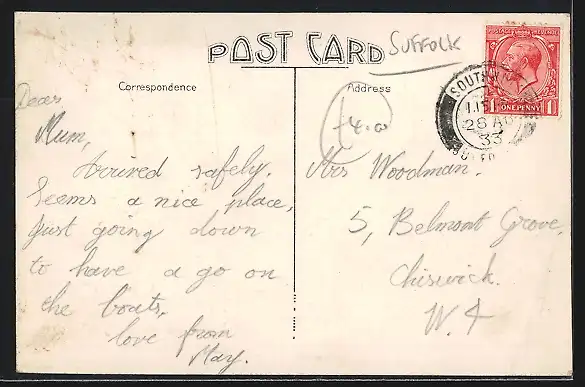 POST CARD
SUFFOLK
Correspondence
Address
£4.00
POSTAGE REVENUE
ONE PENNY
1 1
SOUTHWOLD
28 AU
33
SUFFOLK
Dear
Mum,
Arrived safely.
Seems a nice place,
just going down
to have a go on
the boats,
love from
May.
Mrs Woodman.
5, Belmont Grove,
Chiswick.
W.4